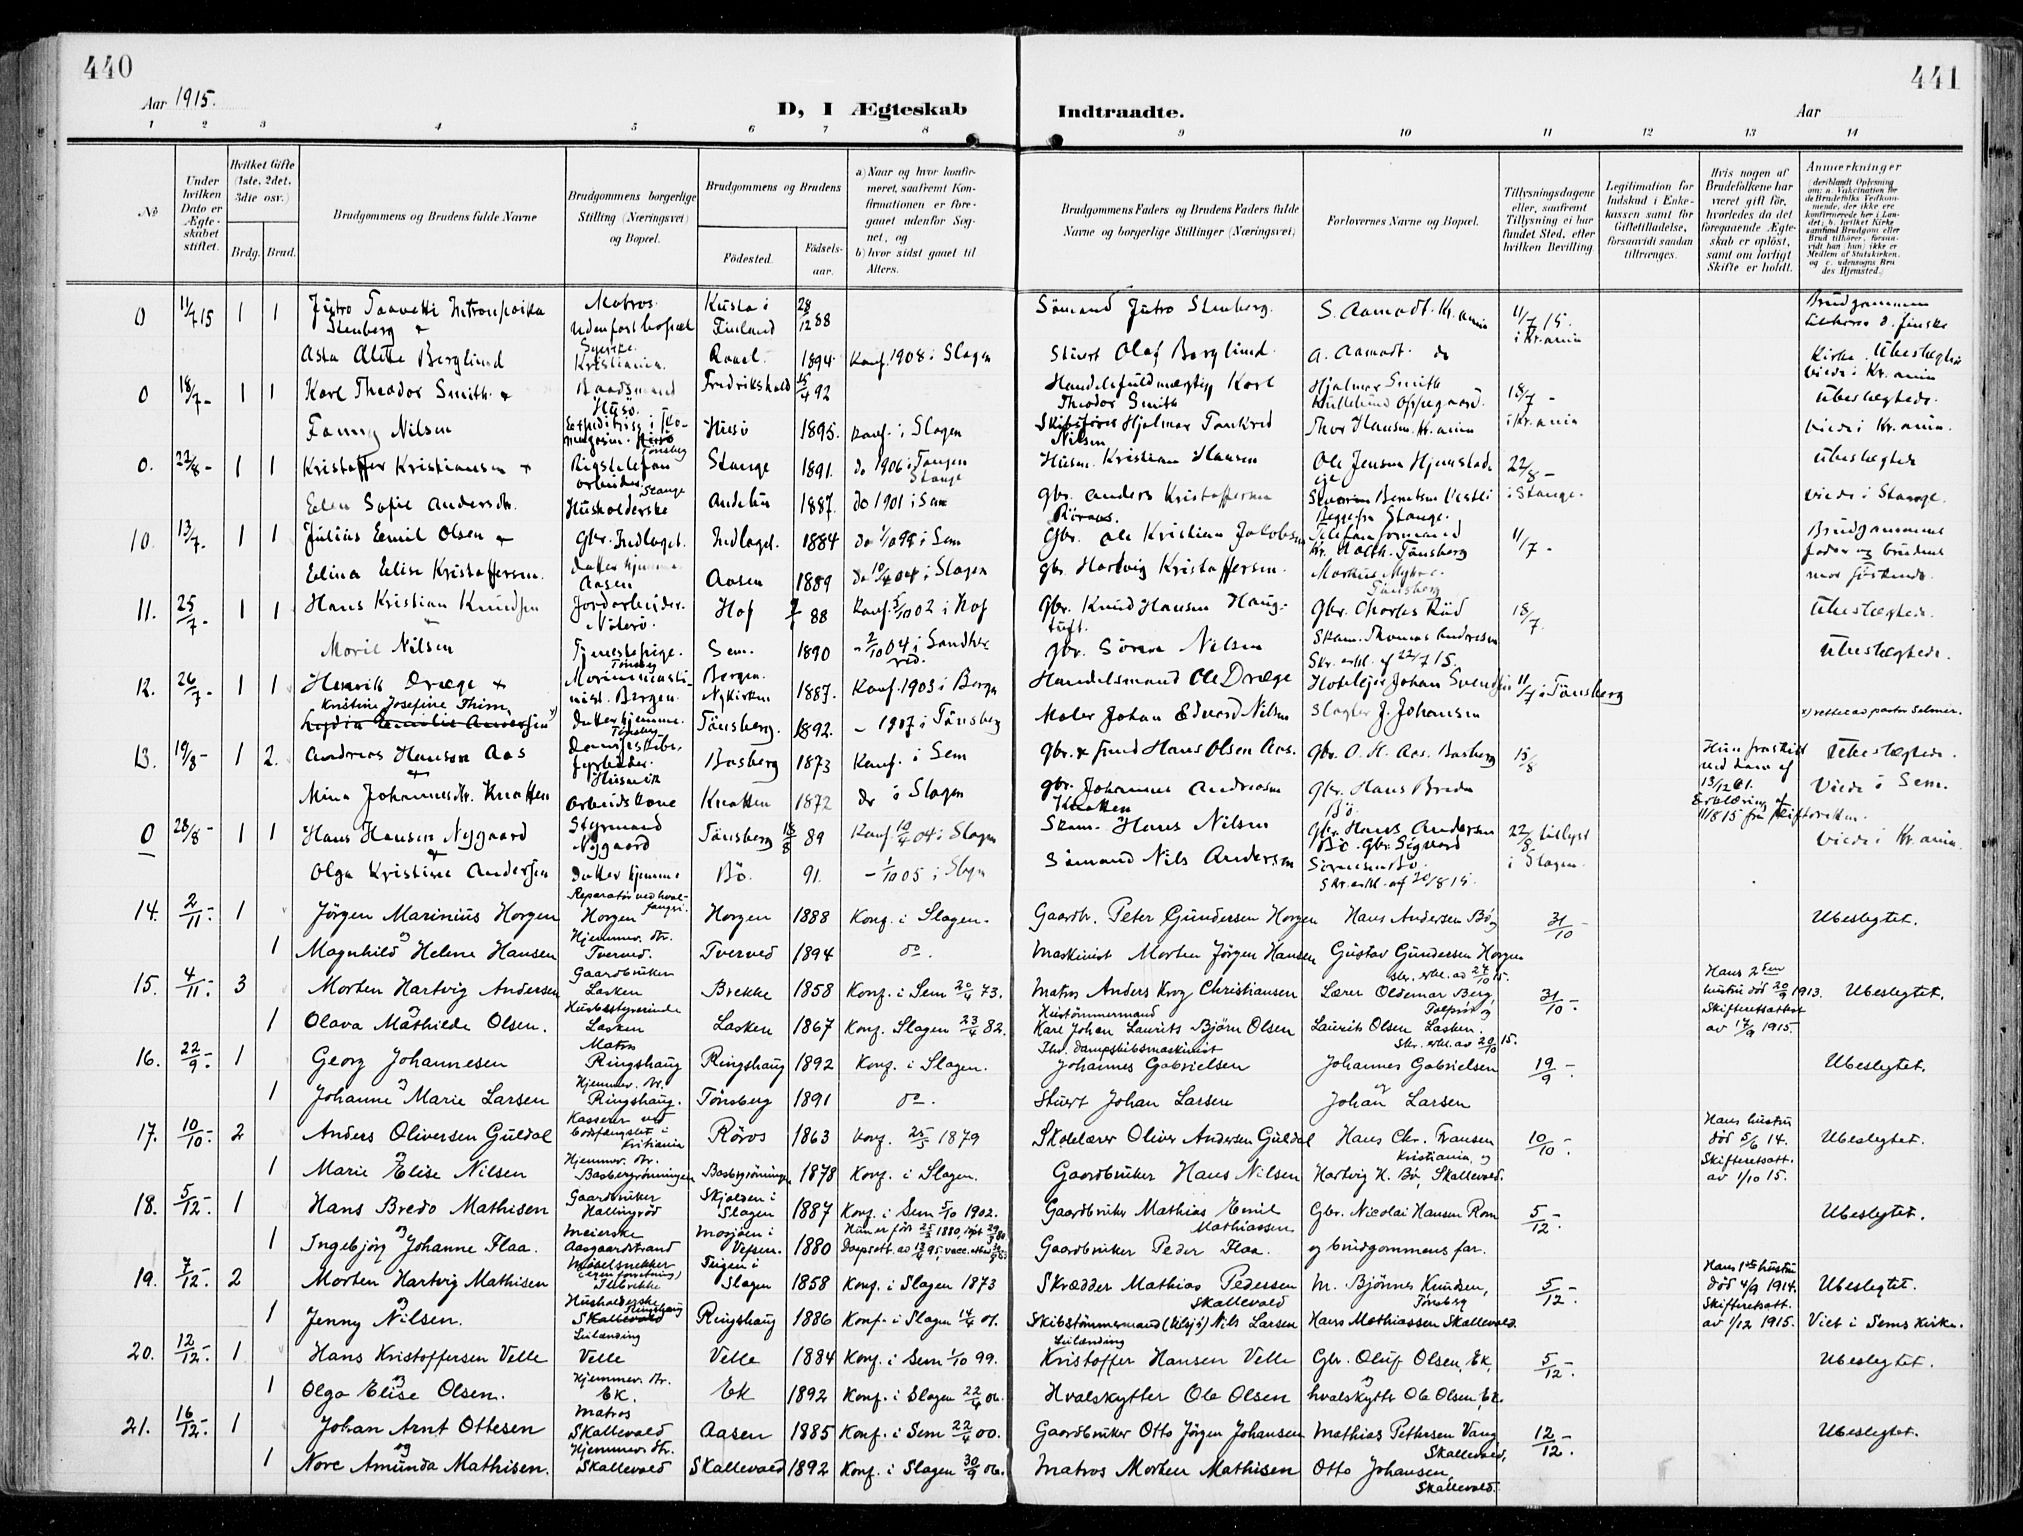 440
441
Aar 1915.
D, I Ægteskab Indtraadte.
Aar
1 2 3 4 5 6 7 8 9 10 11 12 13 14
No
Under hvilken Dato er Ægteskabet stiftet.
Hvilket Gifte (1ste, 2det, 3die osv.)
Brdg. Brud.
Brudgommens og Brudens fulde Navne
Brudgommens borgerlige Stilling (Næringsvei) og Bopæl.
Brudgommens og Brudens
Fødested.
Fødselsaar.
a) Naar og hvor konfirmeret, saafremt Konfirmationen er foregaaet udenfor Sognet, og
b) hvor sidst gaaet til Alters.
Brudgommens Faders og Brudens Faders fulde Navne og borgerlige Stillinger (Næringsvei)
Forlovernes Navne og Bopæl.
Tillysningsdagene eller, saafremt Tillysning ei har fundet Sted, efter hvilken Bevilling
Legitimation for Indskud i Enkekassen samt for Giftetilladelse, forsaavidt saadan tiltrænges.
Hvis nogen af Brudefolkene har været gift før, hvorledes da det foregaaende Ægteskab er opløst, samt om lovligt Skifte er holdt.
Anmerkninger
0 11/7 15 1 1 Stenberg Matros Finland 28/12 88 Sömand Jutro Stenberg. S. Aamodt. Kr.ania 11/7 15. i Kr.ania
Asta Alette Berglund Kristiania. 1894 Konf. 1908 i Slagen Stuert Olaf Berglund. A. Aamodt. do Viede i Kr.ania
0 18/7 - 1 1 Karl Theodor Smith Baadsmand Husö. Fredrikshald 15/4 92 Handelsfuldmægtig Karl Theodor Smith Hjalmar Smith 18/7 - i Kr.ania Ubeslægtede.
Fanny Nilsen Husö 1895. Konf. i Slagen Skibsförer Hjalmar Tankred Nilsen Thor Hansen Kr.ania Viede i Kr.ania.
0. 22/8 - 1 1 Kristoffer Kristiansen Rigstelefon arbeider Stange Stange 1891. do 1906 i Tangen Stange Husm. Kristian Hansen Ole Jensen Hjemstad 22/8 - i Stange. Ubeslægtede
Elen Sofie Andersdtr. Husholderske Andebu 1887. do 1901 i Sem Gbr. Anders Kristoffersen Stange. Viede i Stange.
10. 13/7. 1 1 Julius Emil Olsen Gbr. Indlaget. Indlaget. 1884 do 1/10 98 i Sem Gbr. Ole Kristian Jakobsen Telefonformand Tönsberg 11/7 - Brudgommens fader og brudens mor söskende.
Edina Elise Kristoffersen. Datter hjemme Aasen Aasen 1889 do 10/4 04 i Slagen Gbr. Hartvig Kristoffersen. Tönsberg
11. 25/7 - 1 1 Hans Kristian Knudsen Jordarbeider. Nöterö. Hof 88 Konf. 5/10 02 i Hof Gbr. Knud Hansen Haugtuft. Gbr. Charles Rüd 18/7. Ubeslægtede.
Marie Nilsen Tjenestepige. Tönsberg Sem. 1890 - 2/10 04 i Sandherred. Gbr. Sören Nilsen Skom. Thomas Andersen Skr. erkl. af 22/7 15. Ubeslægtede.
12. 26/7 1 1 Henrik Dræge Bergen Bergen. Nykirken 1887. Konf. 1903 i Bergen Handelsmand Ole Dræge Hoteleier Johan Svendsen 11/7 i Tönsberg
Kristine Josefine Thim
Datter hjemme. Tönsberg Tönsberg. 1892. - 1907 i Tönsberg Maler Johan Edvard Nilsen Slagter J. Johansen x) rettet av pastor Selmer.
13. 19/8 - 1 2. Andreas Hanson Aas Dampskibsfyrböder. Husvik Basberg 1873 Konf. i Sem Gbr. & Smed Hans Olsen Aas. Gbr. O. H. Aas. Basberg 15/8 Hun fraskilt ved dom af 13/12 01. Ubeslægtede.
Mina Johannesdtr. Knatten Arbeidskone Knatten 1872 do i Slagen Gbr. Johannes Andreasen Knatten Gbr. Hans Bredo Bö. Erklæring af 11/8 15 fra skifteretten. Viede i Sem.
0 28/8 - 1 1 Hans Hansen Nygaard Styrmand Nygaard Tönsberg 18/8 89 Konf. 10/4 04 i Slagen Skom. Hans Nilsen Gbr. Hans Andersen Bö. Gbr. Sigurd 22/8 tillyst i Slagen. Viede i Kr.ania.
Olga Kristine Andersen Datter hjemme Bö. 91. - 1/10 05 i Slagen Sömand Nils Andersen Sörensen Bö. Skr. erkl. af 20/8 15.
14. 2/11 - 1 Jörgen Marinius Horgen Reparatör ved hvalfangst. Horgen Horgen 1888 Konf. i Slagen. Gaardbr. Peter Gundersen Horgen Hans Andersen Bö og 31/10 Ubeslegtet.
1 Magnhild Helene Hansen Hjemmev. dtr. Tverved. Tverved 1894 do. Maskinist Morten Jörgen Hansen Gustav Gundersen Horgen skr. erkl. av 27/10 15.
15. 4/11 - 3 Morten Hartvig Andersen Gaardbruker Lasken Brekke 1858 Konf. i Sem 20/4 73. Matros Anders Krog Christiansen Lærer Oldemar Berg, Tolpröt og 31/10 - Hans 2den hustru död 20/9 1913. Skifteretsattest av 17/9 1915. Ubeslegtet.
1 Olava Mathilde Olsen. Husbestyrerinde Lasken Lasken 1867 Konf. Slagen 23/4 82. Hustömmermand Karl Johan Laurits Björn Olsen Laurits Olsen Lasken. Skr. erkl. av 20/10 15.
16. 22/9 - 1 Georg Johannesen Matros Ringshaug Ringshaug 1892 Konf. i Slagen. Fhv. dampskibsmaskinist Johannes Gabrielsen Johannes Gabrielsen 19/9 - Ubeslegtet.
1 Johanne Marie Larsen Hjemmev. dtr. Ringshaug. Tönsberg 1891 do. Stuert Johan Larsen og Johan Larsen
17. 10/10 - 2 Anders Oliversen Guldal Kasserer ved bodsfængslet i Kristiania Röros 1863 konf. 25/5 1879 Skolelærer Oliver Andersen Guldal Hans Chr. Fransen Kristiania, og 10/10 - Hans hustru död 5/6 14. Skifteretsatt. av 1/10 15. Ubeslegtet.
1 Marie Elise Nilsen Hjemmev. dtr. Basbergrönningen Basbergrönningen 1878 Konf. i Slagen. Gaardbruker Hans Nilsen Hartvig H. Bö, Skallevold.
18. 5/12 - 1 Hans Bredo Mathisen Gaardbruker Hallingröd Skjolden i Slagen 1887 Konf. i Sem 5/10 1902. Gaardbruker Mathias Emil Mathiassen Gbr. Nicolai Hansen Rom 5/12 - Ubeslegtet.
1 Ingebjörg Johanne Flaa. Meierske Aasgaardstrand Mosjöen i Vefsen. 1880 Hun er föd 25/2 1880, döpt 29/3 80 Gaardbruker Peder Flaa. og brudgommens far.
19. 7/12 - 2 Morten Hartvig Mathisen Möbelsnekker (egen forretning) Teigen i Slagen 1858 Konf. i Slagen 1873 Skrædder Mathias Pedersen Skallevold M. Björnes Knudsen, Tönsberg 5/12 - Hans 1ste hustru död 4/9 1914. Skifteretsatt. av 1/12 1915. Ubeslegtet.
1 Jenny Nilsen. Husholderske Ringshaug Skallevold Ringshaug 1886 Konf. i Slagen 14/4 01. Skibstömmermand Nils Larsen Hans Mathiassen Skallevold. Viet i Sems Kirke.
20. 12/12 - 1 Hans Kristoffersen Velle Leilænding Velle Velle 1884 Konf. i Sem 1/10 99. Leilænding Kristoffer Hansen Velle Gbr. Oluf Olsen, Ek, 5/12 - Ubeslegtet.
1 Olga Elise Olsen. Hjemmev. dtr. Ek. Ek 1892 Konf. i Slagen 22/4 06. Hvalskytter Ole Olsen hvalskytter Ole Olsen, Ek.
21. 16/12 - 1 Johan Arnt Ottesen Matros Skallevold Aasen 1885 Konf. i Sem 22/4 00. Gaardbruker Otto Jörgen Johansen Mathias Pettersen Vang Skallevold, 12/12 - Ubeslegtet.
og
1 Nore Amunda Mathisen. Hjemmev. dtr. Skallevold Skallevold 1892 Konf. i Slagen 30/9 06. Matros Morten Mathisen Otto Johansen, Skallevold.